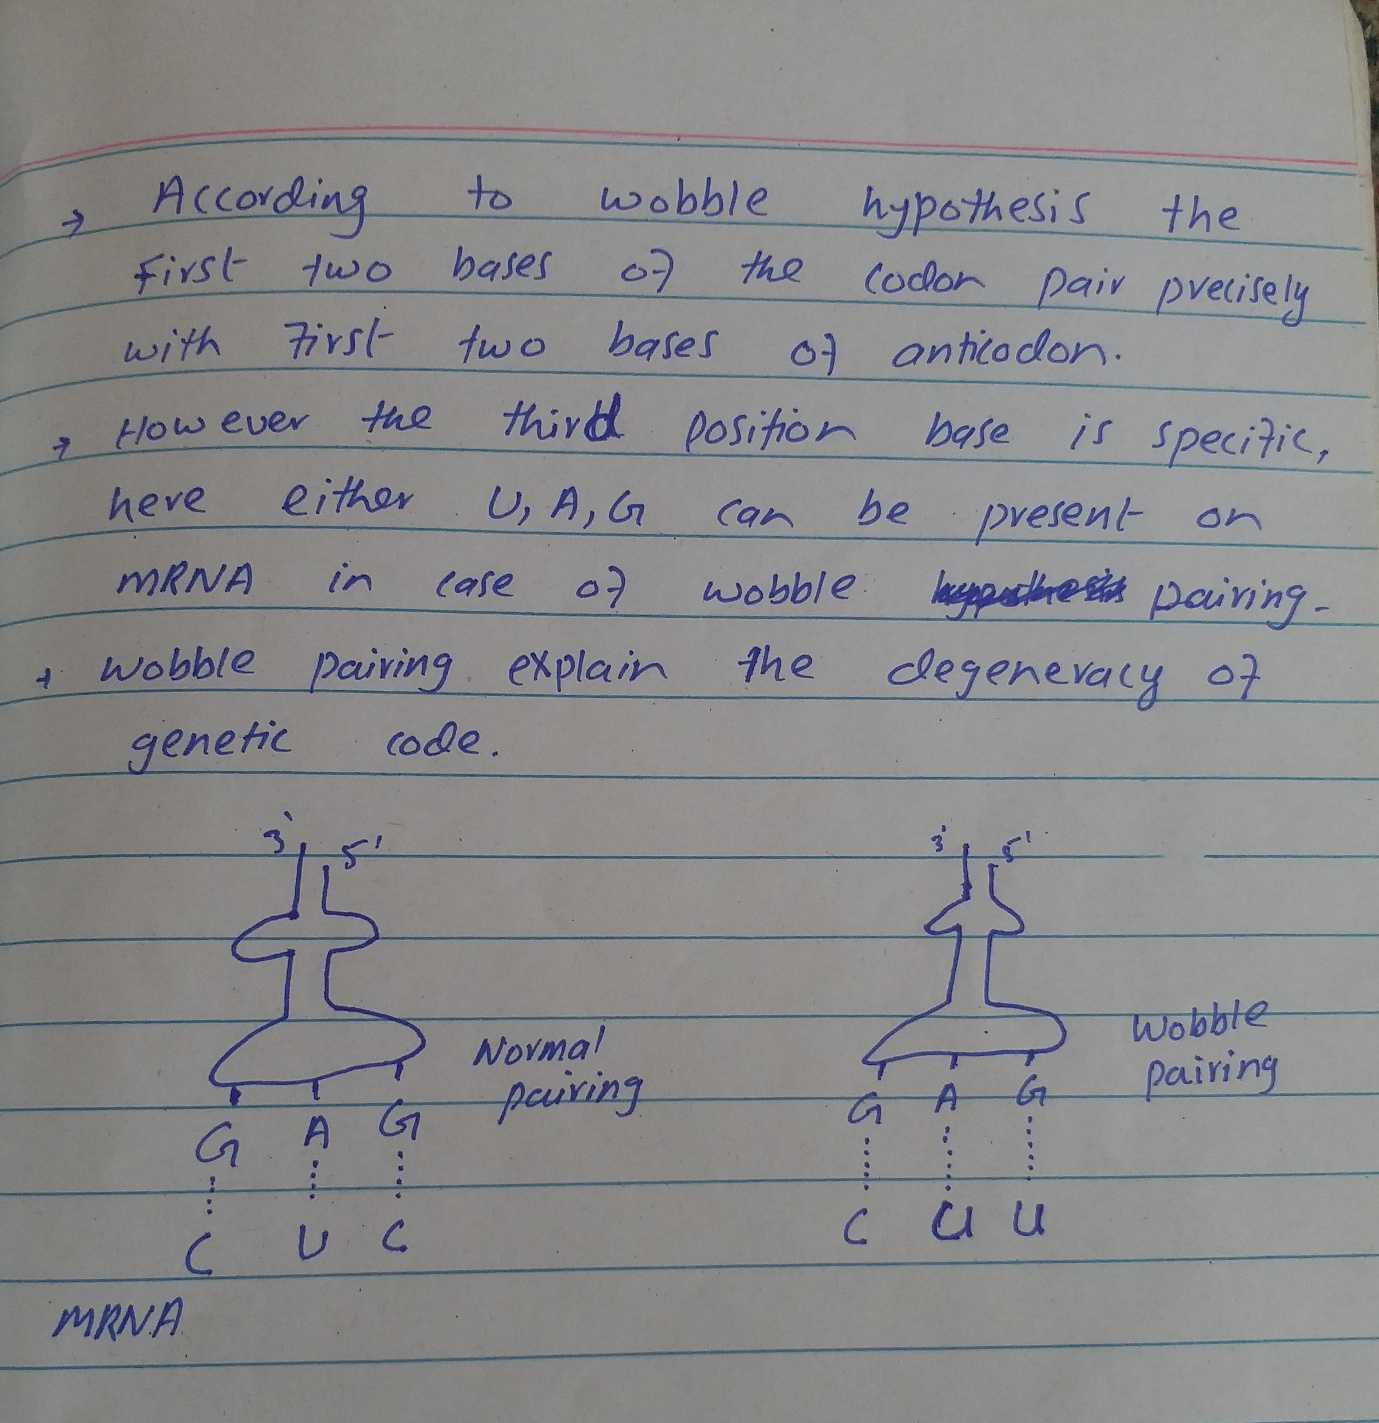 → According to wobble hypothesis the
first two bases of the codon pair precisely
with first two bases of anticodon.
→ However the third position base is specific,
here either U, A, G can be present on
mRNA in case of wobble pairing.
→ wobble pairing explain the degeneracy of
genetic code.
3' 5' 3' 5'
Normal pairing
Wobble pairing
G A G G A G
C U C C U U
mRNA